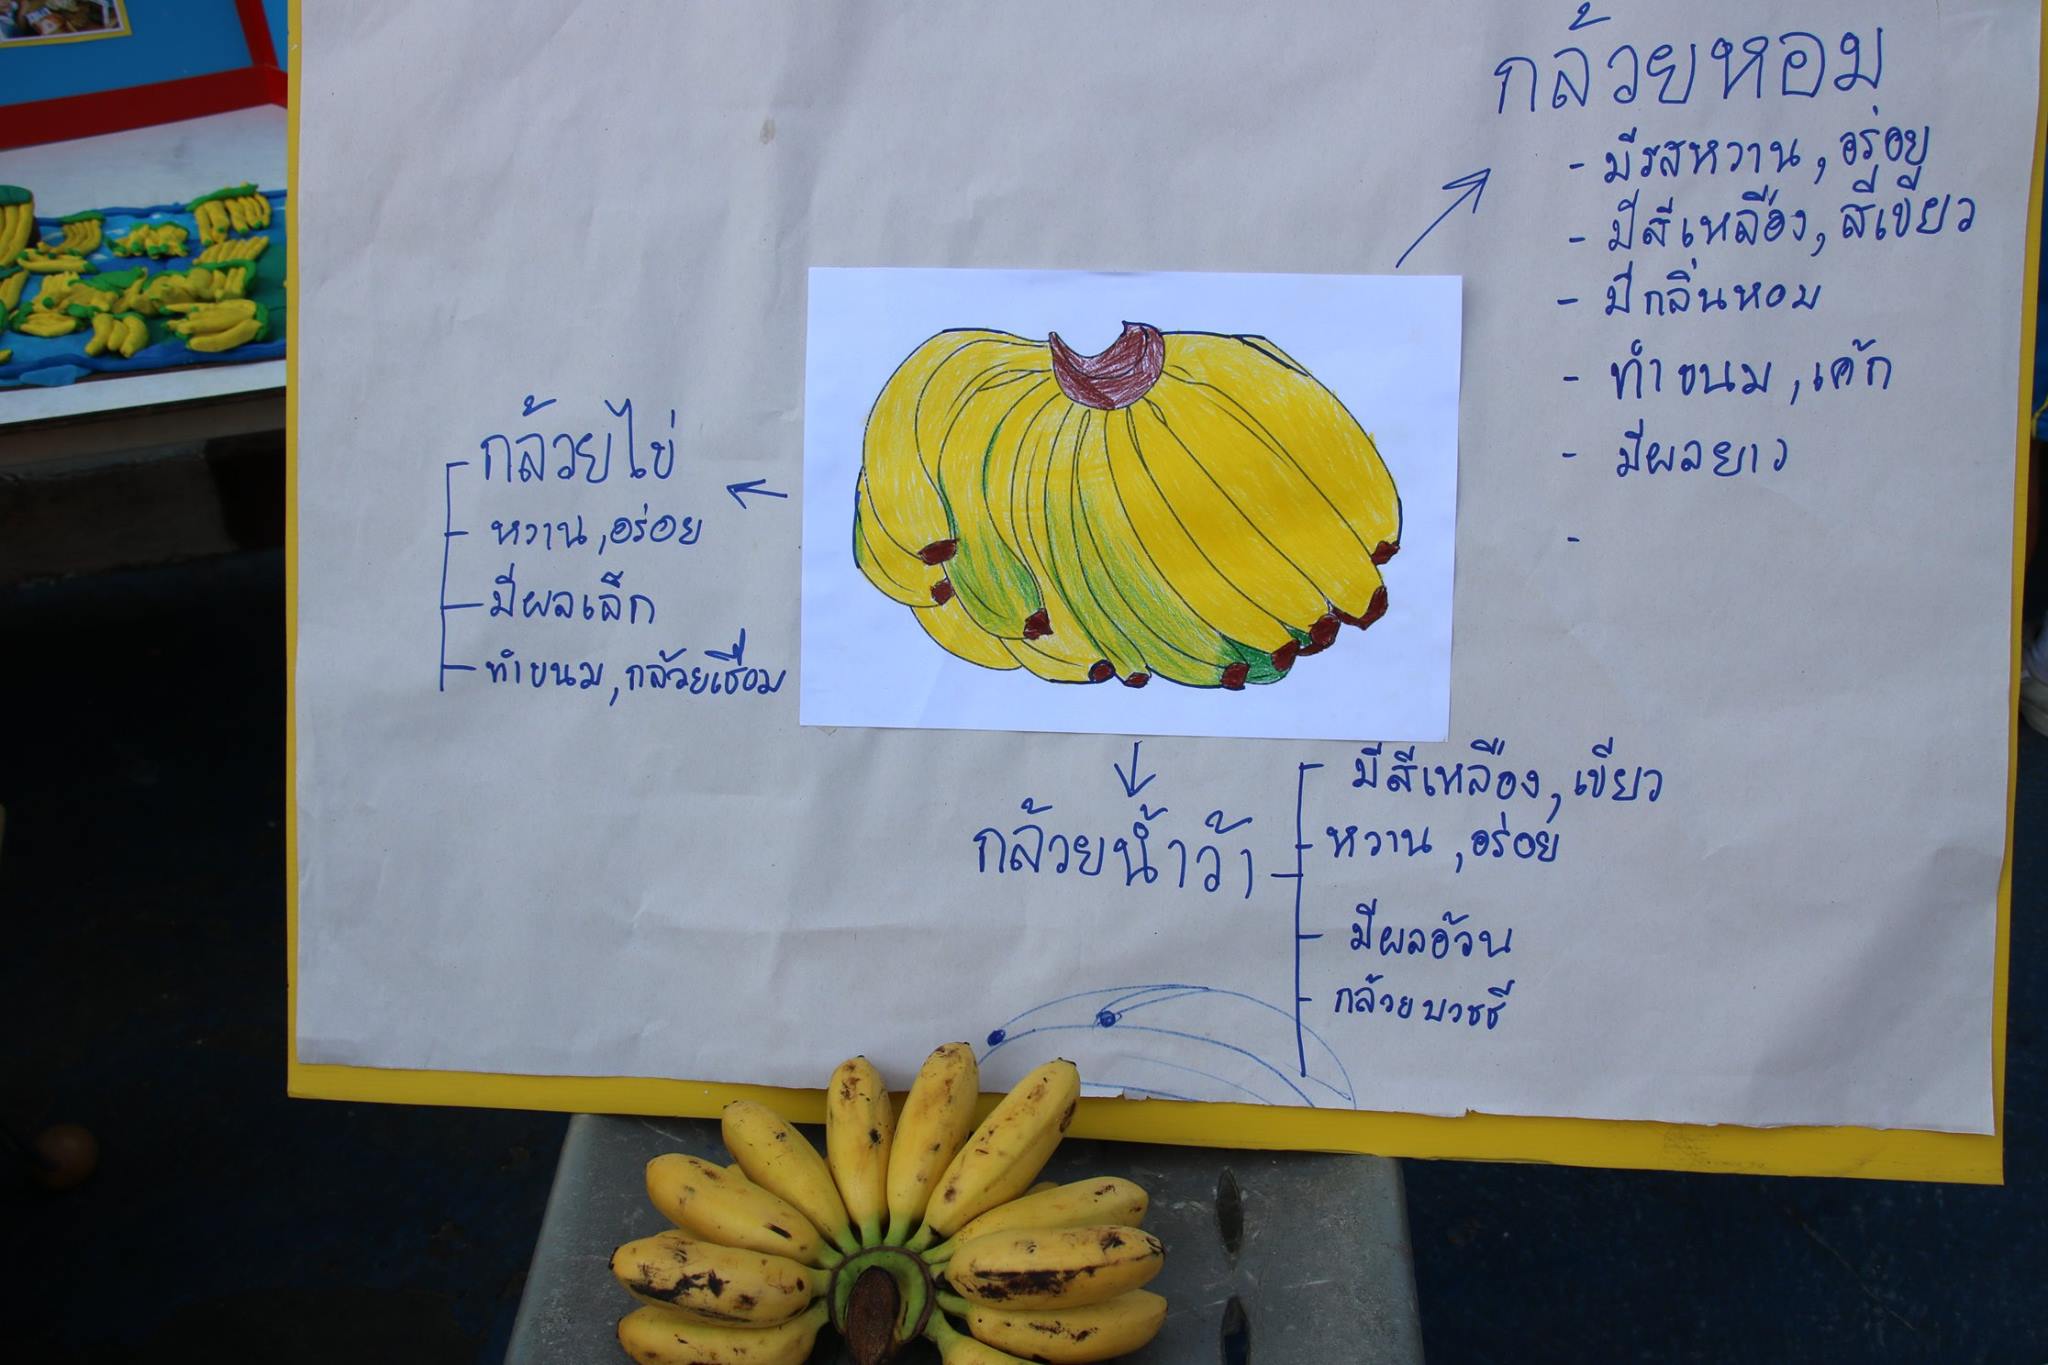 กล้วยหอม
- มีรสหวาน, อร่อย
- มีสีเหลือง, สีเขียว
- มีกลิ่นหอม
- ทำขนม, เค้ก
- มีผลยาว
-
กล้วยไข่
หวาน, อร่อย
มีผลเล็ก
ทำขนม, กล้วยเชื่อม
กล้วยน้ำว้า
มีสีเหลือง, เขียว
หวาน, อร่อย
มีผลอ้วน
กล้วยบวชชี